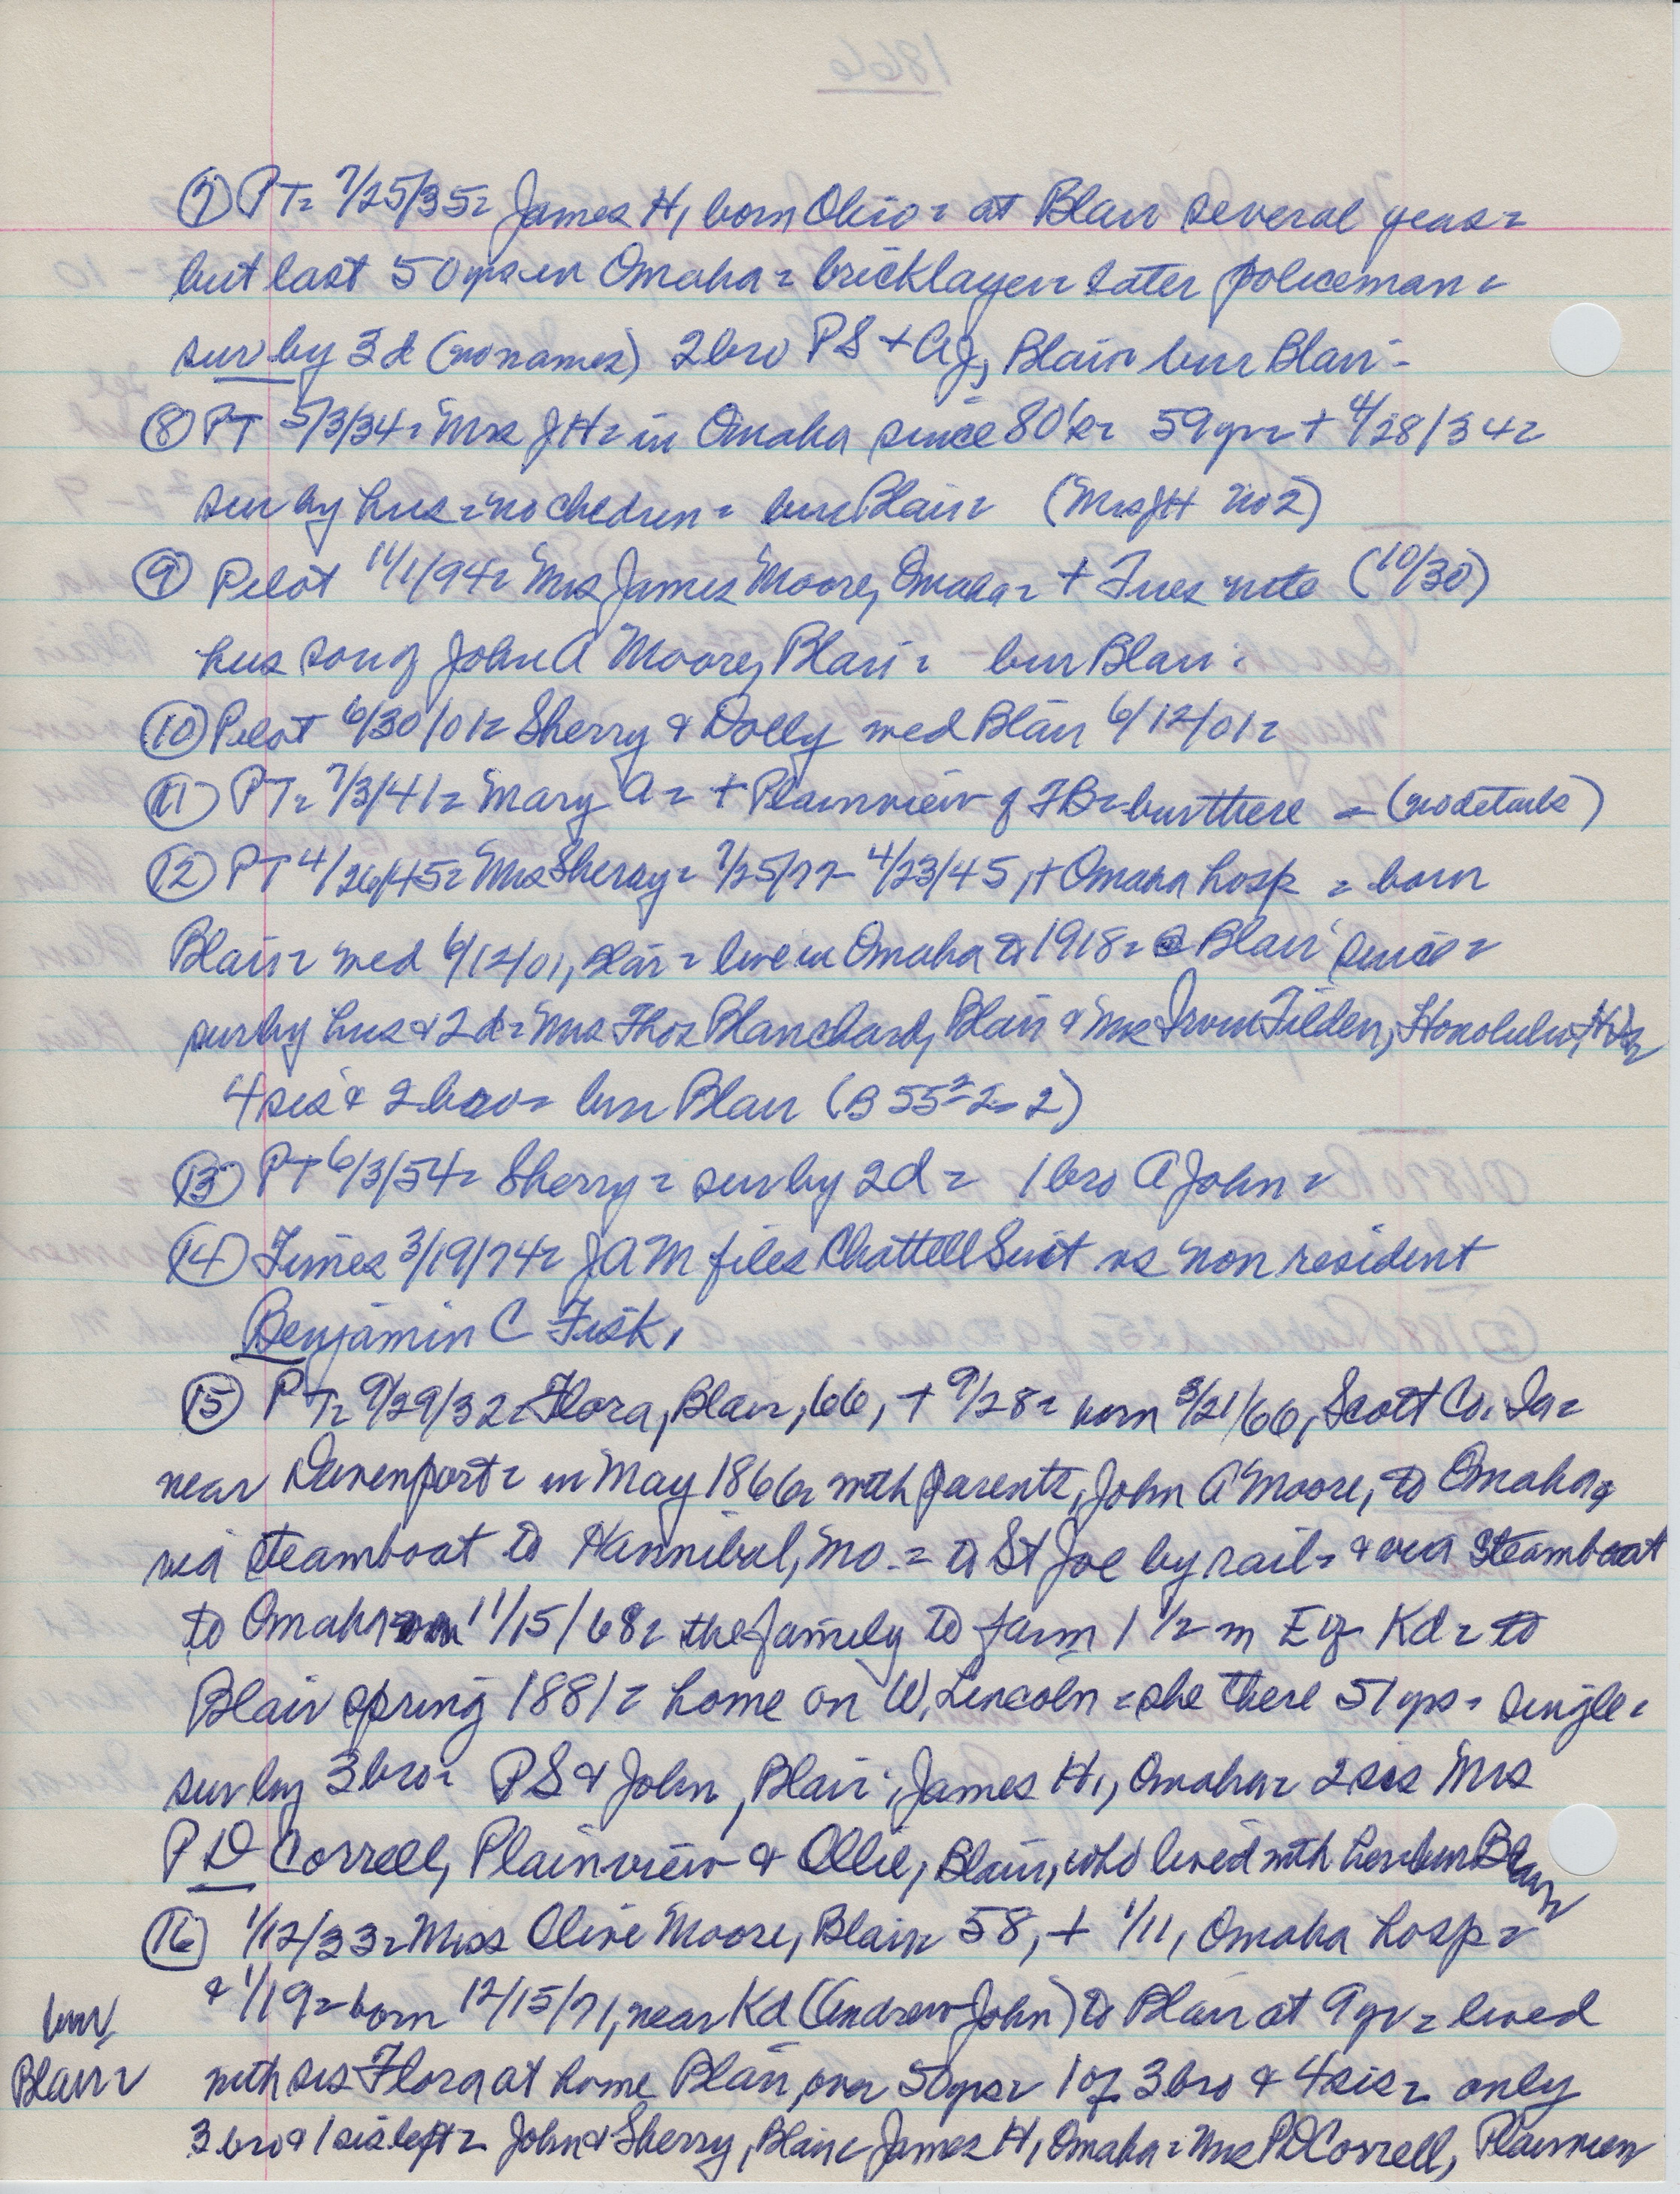 1866
⑦ PT= 7/25/35= James H, born Ohio= at Blair several years=
but last 50 yrs in Omaha= bricklayer= later policeman=
sur by 3 d (no names) 2 bro PS + AJ, Blair bur Blair-
⑧ PT 5/3/34= Mrs JH= in Omaha since 80's= 59 yrs= + 4/28/34=
sur by hus= no children= bur Blair= (Mrs JH No 2)
⑨ Pilot 11/1/94= Mrs James Moore, Omaha= + Tues nite (10/30)
hus son of John A Moore, Blair= bur Blair=
⑩ Pilot 6/30/01= Sherry & Dolly med Blair 6/12/01=
⑪ PT= 7/3/41= Mary A= + Plainview of TB= bur there = (no details)
⑫ PT 4/26/45= Mrs Sherry= 7/25/77- 4/23/45, + Omaha hosp = born
Blair= med 6/12/01, Blair= live in Omaha to 1918= @ Blair since=
sur by hus & 2 d= Mrs Thos Blanchard, Blair & Mrs Irvin Tilden, Honolulu,
4 sis & 2 bro= bur Blair (B 55=2=2)
⑬ PT 6/3/54= Sherry= sur by 2d= 1 bro A John=
⑭ Times 3/19/74= JAM files Chattell Suit vs non resident
Benjamin C Fisk,
⑮ PT= 9/29/32= Flora, Blair, 66, + 9/28= born 3/21/66, Scott Co. Ia=
near Davenport= in May 1866= with parents, John A Moore, to Omaha
via steamboat to Hannibal, Mo.= to St Joe by rail= & via steamboat
to Omaha 11/15/68= the family to farm 1 1/2 m E of Kd= to
Blair spring 1881= home on W. Lincoln= she there 51 yrs= single=
sur by 3 bro= PS & John, Blair; James H., Omaha= 2 sis Mrs
P D Correll, Plainview & Ollie, Blair, who lived with her= bur Blair=
⑯ 1/12/33= Miss Olive Moore, Blair 58, + 1/11, Omaha hosp=
& 1/19= born 12/15/71, near Kd (Andrew John) to Blair at 9 yr= lived
bur
Blair=
with sis Flora at home Blair, over 50 yrs= 1 of 3 bro & 4 sis= only
3 bro & 1 sis left= John & Sherry, Blair= James H, Omaha= Mrs PD Correll, Plainview